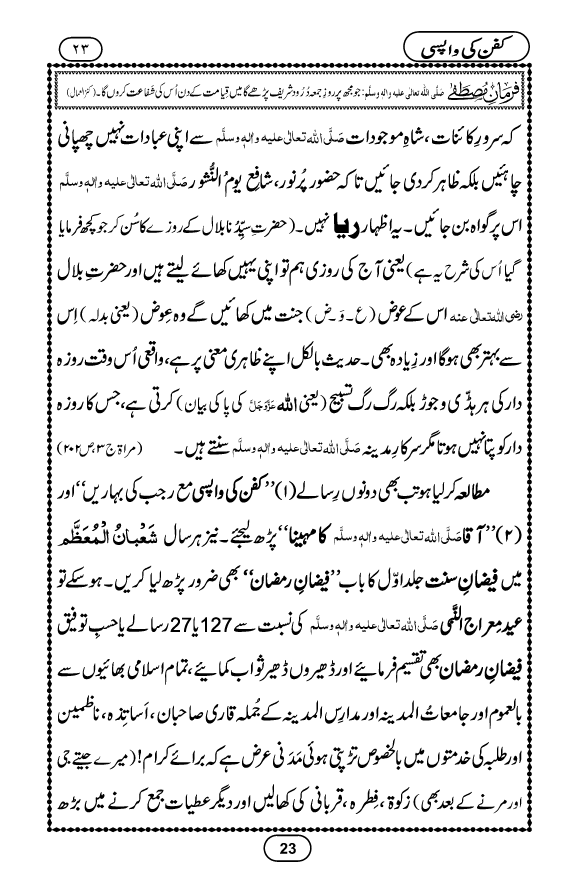 کفن کی واپسی
۲۳
فرمانِ مصطفےٰ صَلَّی اللہ تعالیٰ علیہ واٰلہٖ وسلَّم: جو مجھ پر روزِ جمعہ دُرُود شریف پڑھے گا میں قیامت کے دن اُس کی شَفاعت کروں گا۔ (کنز العمال)
کہ سرورِ کائنات، شاہِ موجودات صَلَّی اللہ تعالیٰ علیہ واٰلہٖ وسلَّم سے اپنی عبادات نہیں چھپانی
چاہئیں بلکہ ظاہر کردی جائیں تاکہ حضور پُرنور، شافِعِ یومُ النُّشُور صَلَّی اللہ تعالیٰ علیہ واٰلہٖ وسلَّم
اس پر گواہ بن جائیں۔ یہ اظہار ریا نہیں۔ (حضرتِ سیِّدُنا بلال کے روزے کا سُن کر جو کچھ فرمایا
گیا اُس کی شرح یہ ہے) یعنی آج کی روزی ہم تو اپنی یہیں کھائے لیتے ہیں اور حضرتِ بلال
رضی اللہ تعالیٰ عنہ اس کے عِوَض (ع۔وَ۔ض) جنت میں کھائیں گے وہ عِوض (یعنی بدلہ) اِس
سے بہتر بھی ہوگا اور زِیادہ بھی۔ حدیث بالکل اپنے ظاہری معنٰی پر ہے، واقعی اُس وقت روزہ
دار کی ہر ہڈّی و جوڑ بلکہ رگ رگ تسبیح (یعنی اللہ عَزَّوَجَلَّ کی پاکی بیان) کرتی ہے، جس کا روزہ
دار کو پتا نہیں ہوتا مگر سرکارِ مدینہ صَلَّی اللہ تعالیٰ علیہ واٰلہٖ وسلَّم سنتے ہیں۔ (مراۃ ج۳، ص۲۰۲)
مطالعہ کرلیا ہو تب بھی دونوں رسالے (۱)’’کفن کی واپسی مع رجب کی بہاریں‘‘ اور
(۲)’’آقا صَلَّی اللہ تعالیٰ علیہ واٰلہٖ وسلَّم کا مہینا‘‘ پڑھ لیجئے۔ نیز ہر سال شَعْبانُ الْمُعَظَّم
میں فیضانِ سنت جلد اوّل کا باب ’’فیضانِ رمضان‘‘ بھی ضرور پڑھ لیا کریں۔ ہوسکے تو
عیدِ معراجُ النَّبی صَلَّی اللہ تعالیٰ علیہ واٰلہٖ وسلَّم کی نسبت سے 127 یا 27 رسالے یا حسبِ توفیق
فیضانِ رمضان بھی تقسیم فرمائیے اور ڈھیروں ڈھیر ثواب کمائیے، تمام اسلامی بھائیوں سے
بالعموم اور جامعاتُ المدینہ اور مدارِسُ المدینہ کے جُملہ قاری صاحبان، اَساتِذہ، ناظمین
اور طلبہ کی خدمتوں میں بالخصوص تڑپتی ہوئی مَدَنی عرض ہے کہ برائے کرام! (میرے جیتے جی
اور مرنے کے بعد بھی) زکوٰۃ، فِطرہ، قربانی کی کھالیں اور دیگر عطیات جمع کرنے میں بڑھ
23